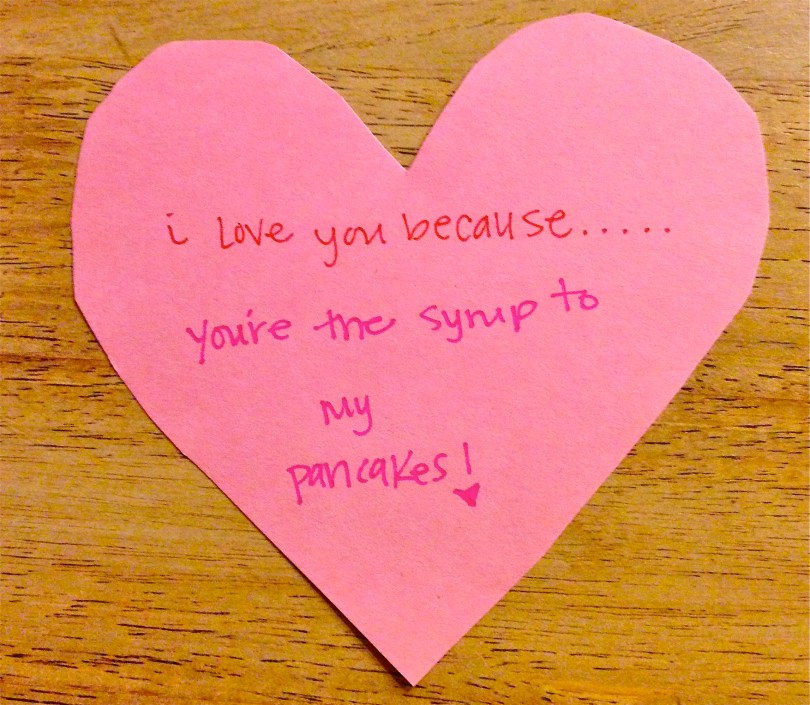 i love you because.....
you're the syrup to
my
pancakes!